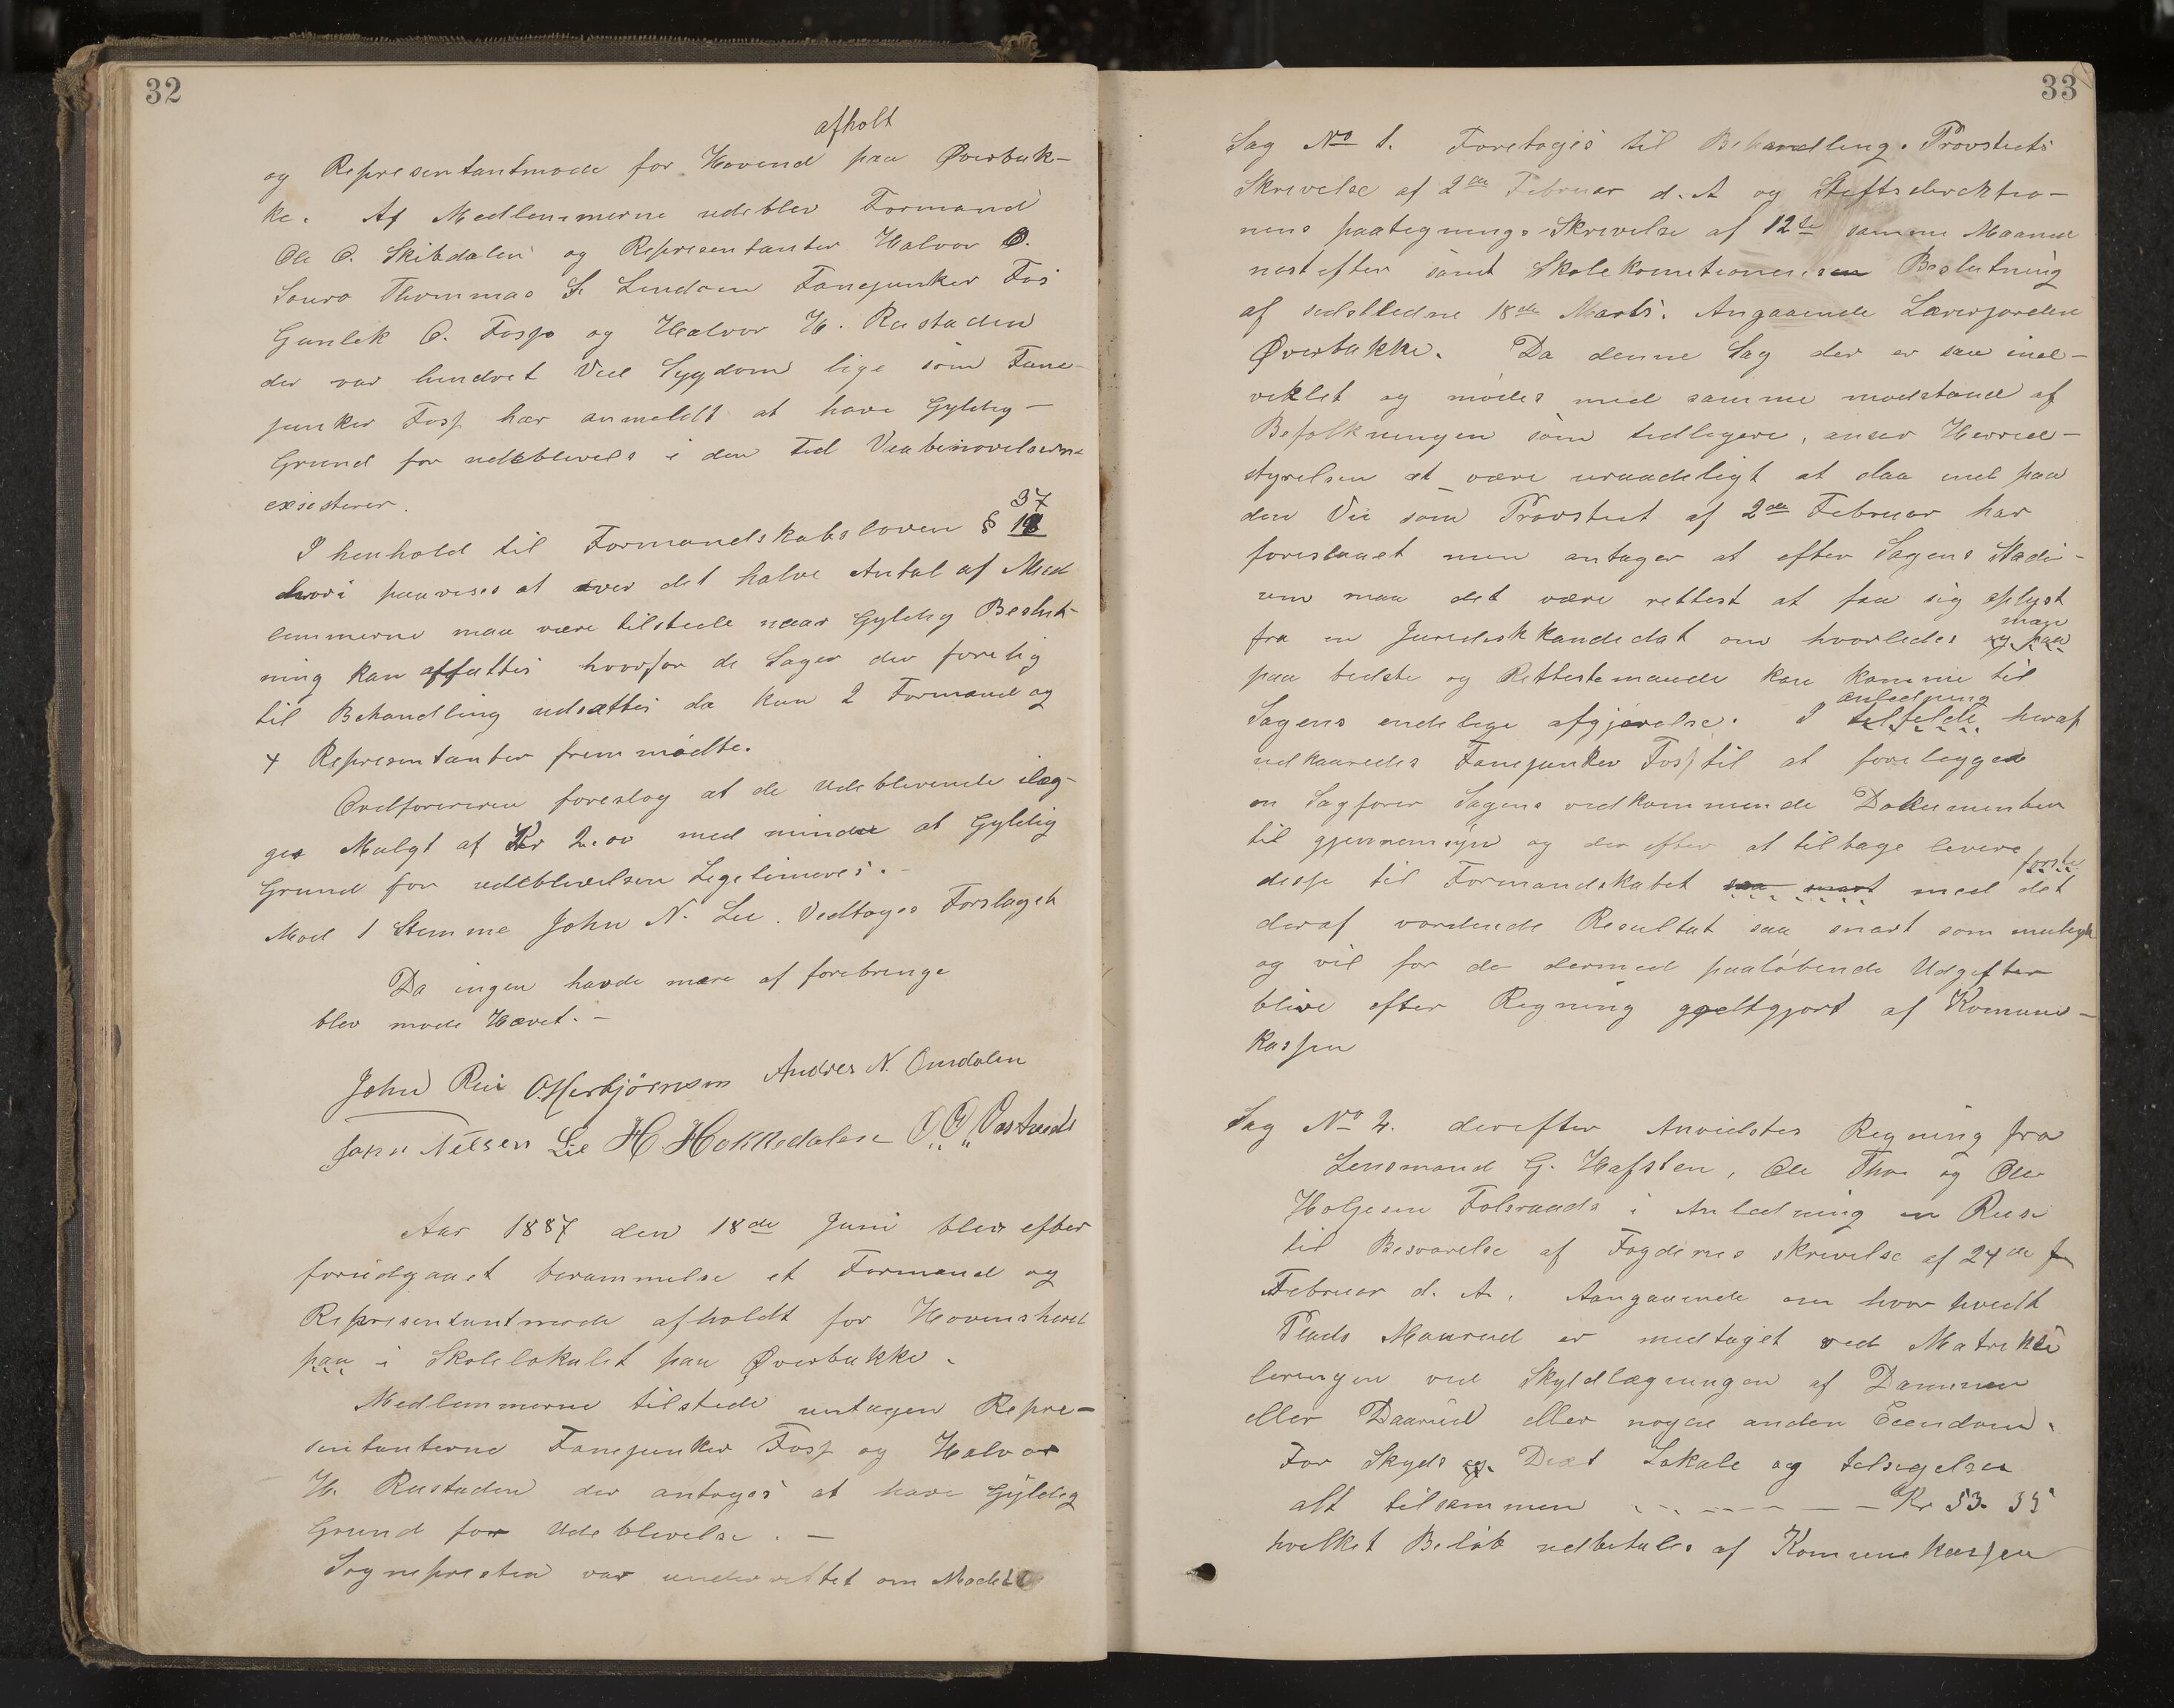 32
afholt
og Representantmøde for Hovind paa Øverbøk-
ke. Af Medlemmerne udeblev Formand
Ole O. Skibdalen og Representanter Halvor O.
Thommas S. Fanejunker Fos
Gunlek O. Fosso og Halvor H. Rustaden
der var hindret Ved Sygdom lige som Fane-
junker Foss har anmeldt at have Gyldig
Grund for udeblivels i den tid Vaabenøvelserne
exsisterer.
37
I henhold til Formandskabsloven §
hvori paavises at over det halve Antal af Med
lemmerne maa være tilstede naar Gyldig Beslut-
ning kan affattes hvorfor de Sager der forelig
til Behandling udsættes da kun 2 Formænd og
4 Representanter fremmødte.
Ordføreren foreslog at de Udeblivende ilæg-
ges Mulgt af Kr 2.00 med mindre at Gyldig
Grund for udeblivelsen Legetimeres. -
Mod 1 Stemme John N. Lie. Vedtoges Forslaget
Da ingen havde mere af forebringe
blev møde Hævet. -
John Rui O. Herbjørnsen Andres N. Omdalen
John Nilsen Lie H Hokksdalen O. G. Vastveit
Aar 1887 den 18de Juni blev efter
forudgaaet berammelse et Formand og
Representantmøde afholdt for Hovinsherred
paa i Skolelokalet paa Øverbøkke.
Medlemmerne tilstede untagen Repre-
sentanterne Fanejunker Foss og Halvor
H. Rustaden der antoges at have Gyldig
Grund for Udeblivelse. -
Sognepresten var underrettet om Mødet
33
Sag No 1. Foretoges til Behandling. Provstiets
Skrivelse af 2den Februar d. A og Stiftsdirektio-
nens paategnings-Skrivelse af 12te samme Maaned
nest efter samt Skolekomitionens Beslutning
af sidstledne 18de Marts. Angaaende Lærerjorden
Øverbøkke. Da denne Sag der er saa ind-
viklet og mødes med samme modstand af
Befolkningen som tidligere, anser Herred-
styrelsen at være uraadeligt at slaa ind paa
den Vei som Provstiet af 2den Februar har
foreslaaet men antager at efter Sagens Stadi-
um maa det være rettest at faa sig oplyst
fra en Juredisk kandedat om hvorledes og paa
man
paa bedste og Rettestemaade kan komme til
Sagens endelige afgjørelse. I tilfelde heraf
anledning
udkaaredes Fanejunker Foss til at forelegge
en Sagfører Sagens vedkommende Dokumenter
til gjennemsyn og derefter at tilbage levere
disse til Formandskabet saa snart med det
første
deraf vordende Resultat saa snart som muligt
og vil for de dermed paaløbende Udgifter
blive efter Regning godtgjort af Komune-
kassen
Sag No 2. derefter Anvistes Regning fra
Lensmand G. Hafsten, Ole Tho og Ole
Holjesen Folsraads i Anledning en Reise
til Besvarelse af Fogdernes skrivelse af 24de
Februar d. A. Aangaaende om hvor hvidt
Plads Maurud er medtaget ved Matrikü
leringen ved Skyldlægningen af Dammen
eller Daarud eller nogen anden Eiendom.
For Skyds og. Diæt Lokale og tilsigelser
alt tilsammen - - - - - - Kr 53. 35
hvilket Beløb udbetales af Komunekassen